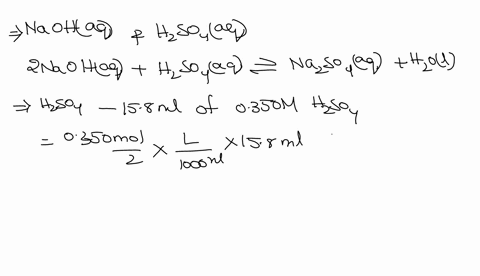 ⇒ NaOH(aq) & H₂SO₄(aq)
2NaOH(aq) + H₂SO₄(aq) ⇌ Na₂SO₄(aq) + H₂O(l)
⇒ H₂SO₄ — 15.8 ml of 0.350M H₂SO₄
= 0.350mol/2 × L/1000ml × 15.8 ml